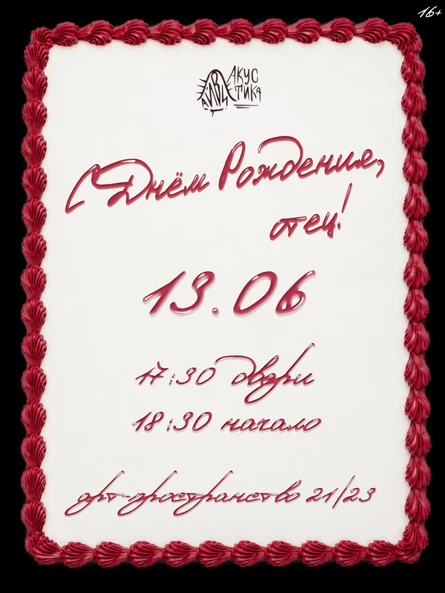 16+
АКУС
ТИКА
С Днём Рождения,
отец!
13.06
17:30 двери
18:30 начало
арт-пространство 21/23